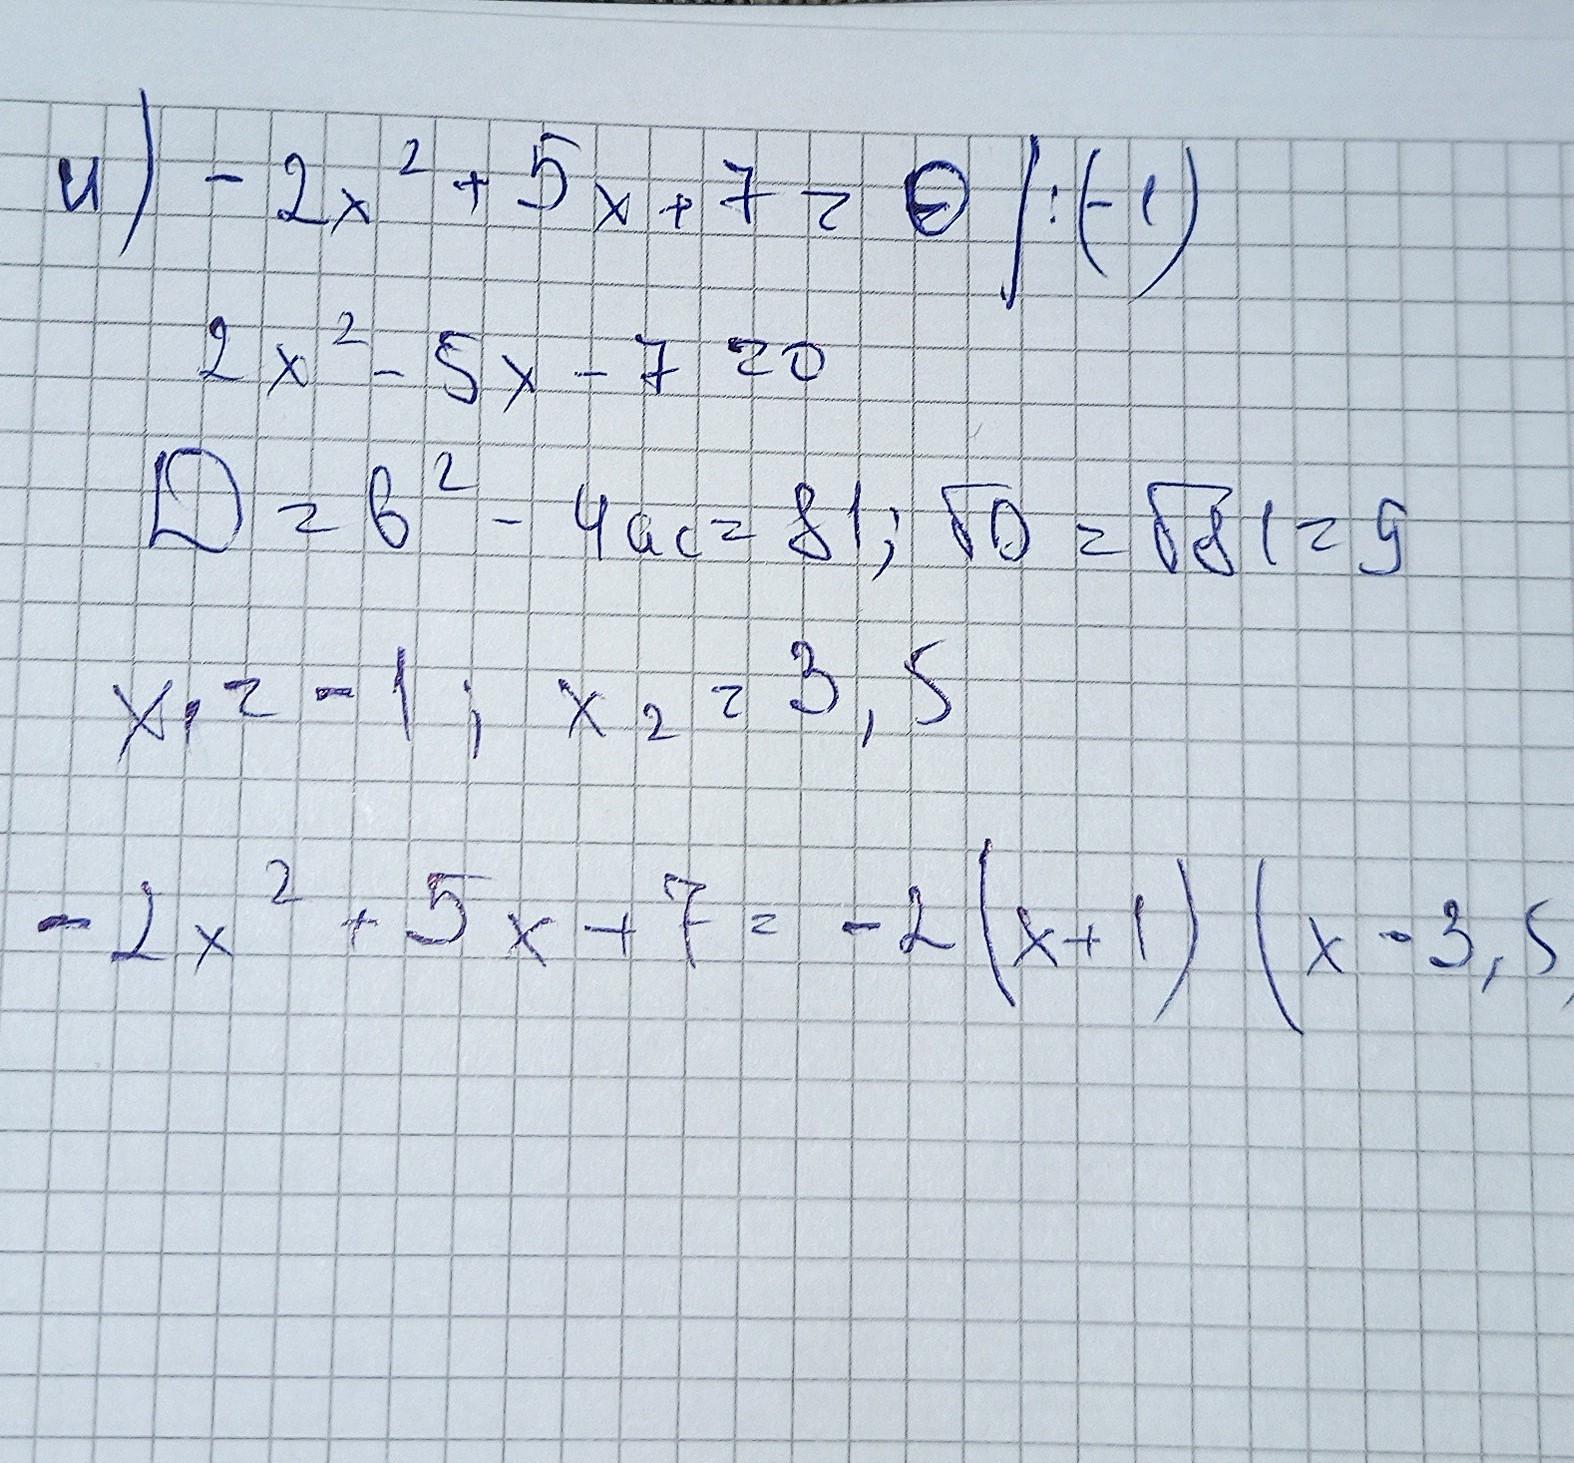 и) -2x² + 5x + 7 = 0 /:(-1)
2x² - 5x - 7 = 0
D = b² - 4ac = 81; √D = √81 = 9
x₁ = -1; x₂ = 3,5
-2x² + 5x + 7 = -2(x+1)(x-3,5